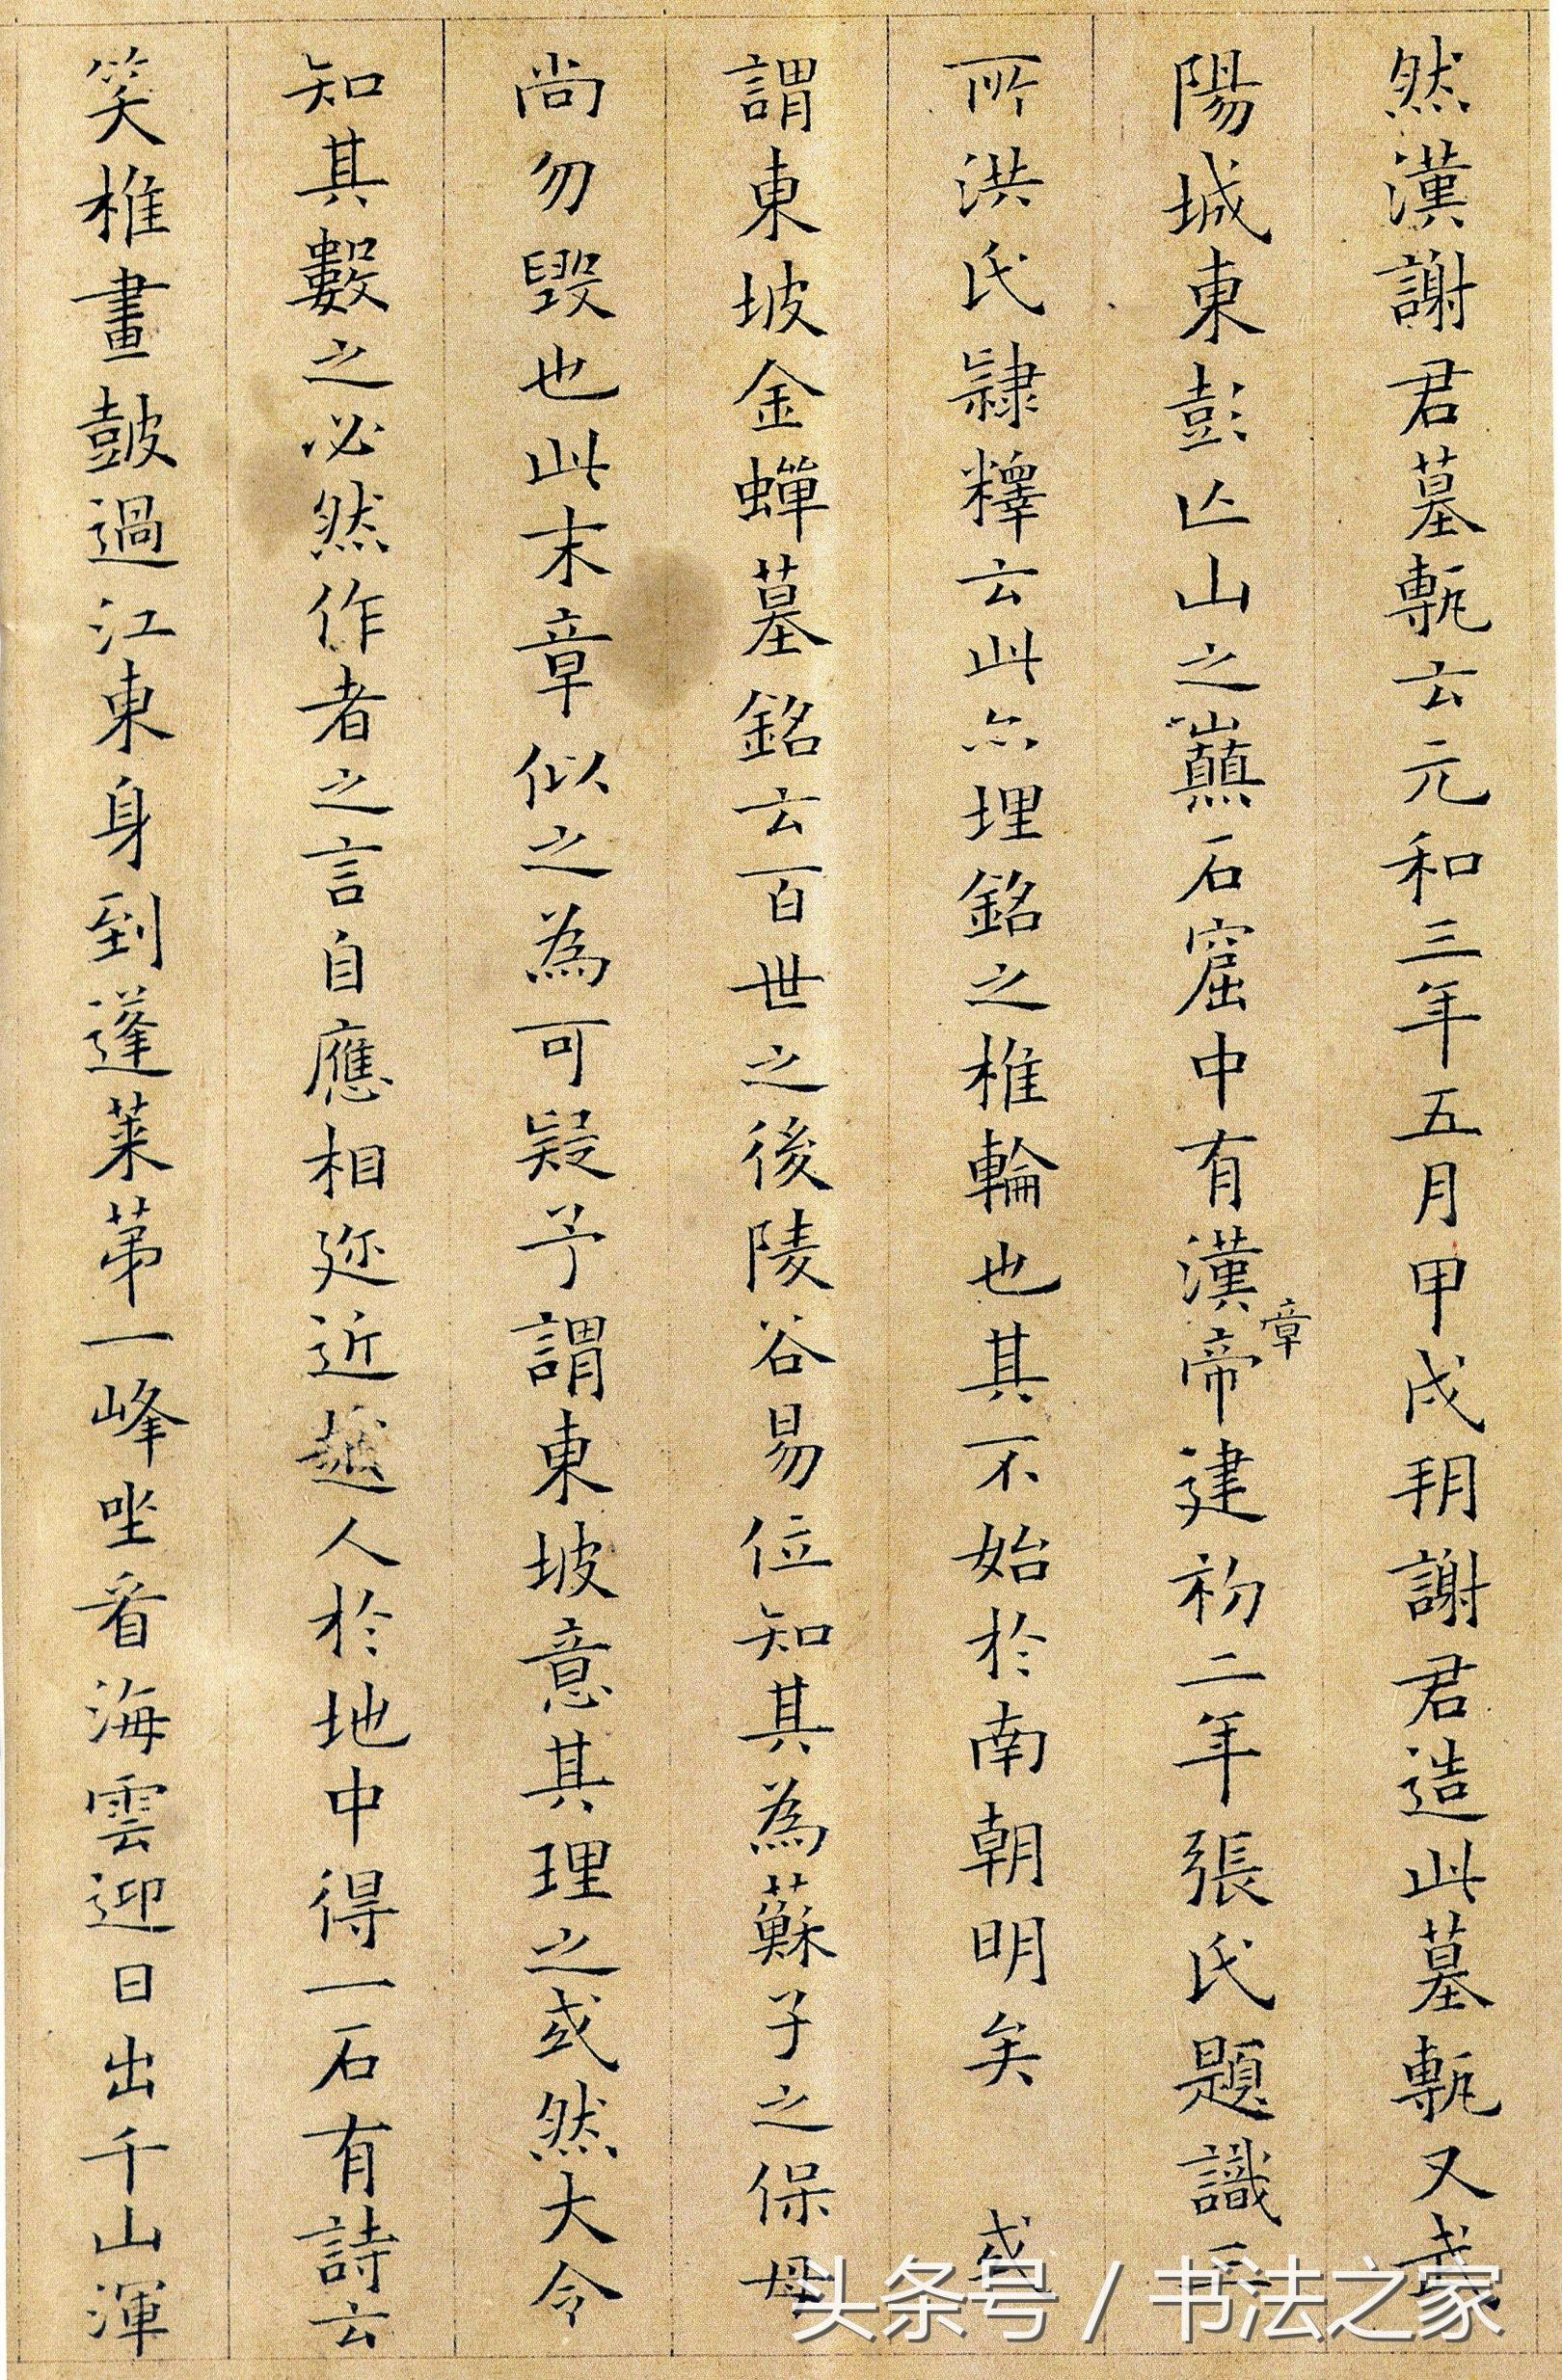 然漢謝君墓甎云元和三年五月甲戌朔謝君造此墓甎又武
陽城東彭亡山之巔石窟中有漢章帝建初二年張氏題識
所洪氏隸釋云此亦埋銘之椎輪也其不始於南朝明矣 或
謂東坡金蟬墓銘云百世之後陵谷易位知其為蘇子之保母
尚勿毀也此末章似之為可疑予謂東坡意其理之或然大令
知其數之必然作者之言自應相迩近越人於地中得一石有詩云
笑椎畫鼓過江東身到蓬萊第一峰坐看海雲迎日出千山渾
头条号 / 书法之家